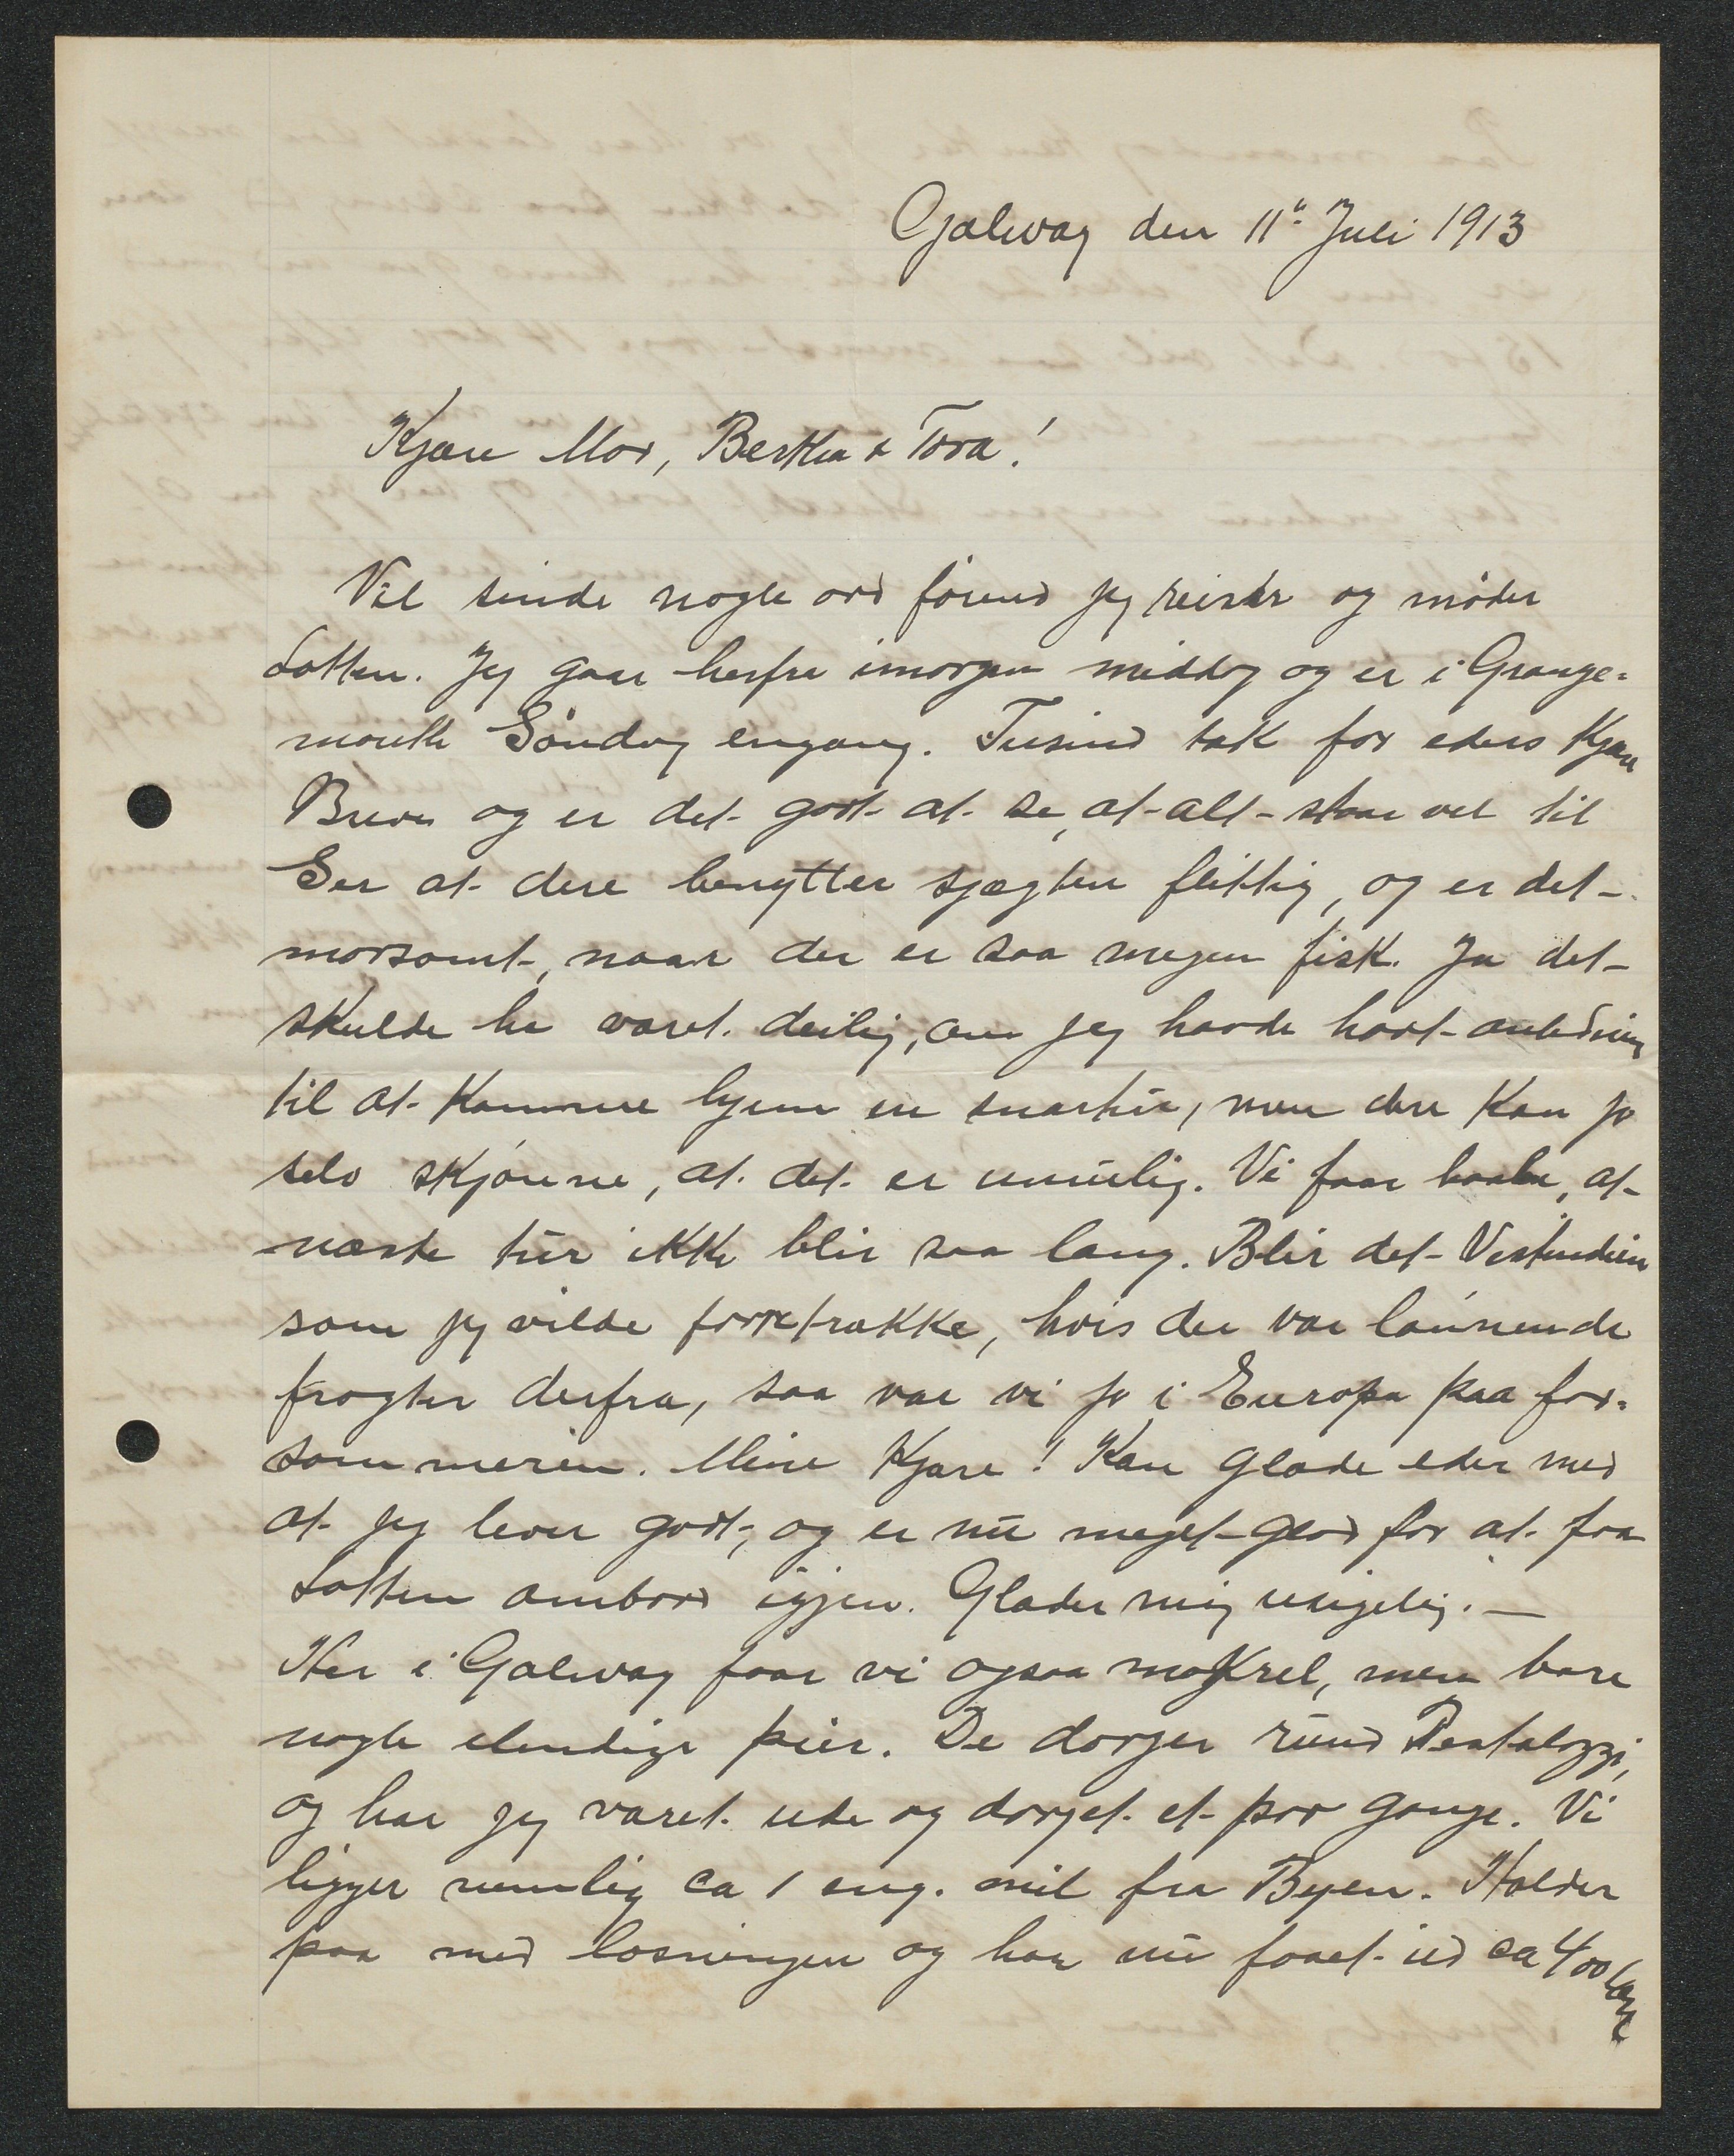 Galway den 11" Juli 1913
Kjære Mor, Bertha & Tora!
Vil sende nogle ord førend jeg reiser og møder
Lotten. Jeg gaar herfra imorgen middag og er i Grange-
mouth Søndag engang. Tusind tak for eders Kjære
Breve og er det godt at se, at alt staar vel til
Ser at dere benytter sjægten flittig, og er det
morsomt, naar der er saa megen fisk. Ja det
skulde ha været deilig, om jeg havde havt anledning
til at komme hjem en snartur, men dere kan jo
selv skjønne, at det er umulig. Vi faar haabe, at
næste tur ikke blir saa lang. Blir det Vestindien
som jeg vilde foretrække, hvis der var lønnende
fragter derfra, saa var vi jo i Europa paa for-
sommeren. Mine Kjære! Kan glæde eder med
at jeg lever godt, og er nu meget glad for at faa
Lotten ombord igjen. Glæder mig usigelig. —
Her i Galway faar vi ogsaa makrel, men bare
nogle elendige pier. De dorger rund Pestalozzi,
og har jeg været ude og dorget et par gange. Vi
ligger nemlig ca 1 eng. mil fra Byen. Holder
paa med losningen og har nu faaet ud ca 400